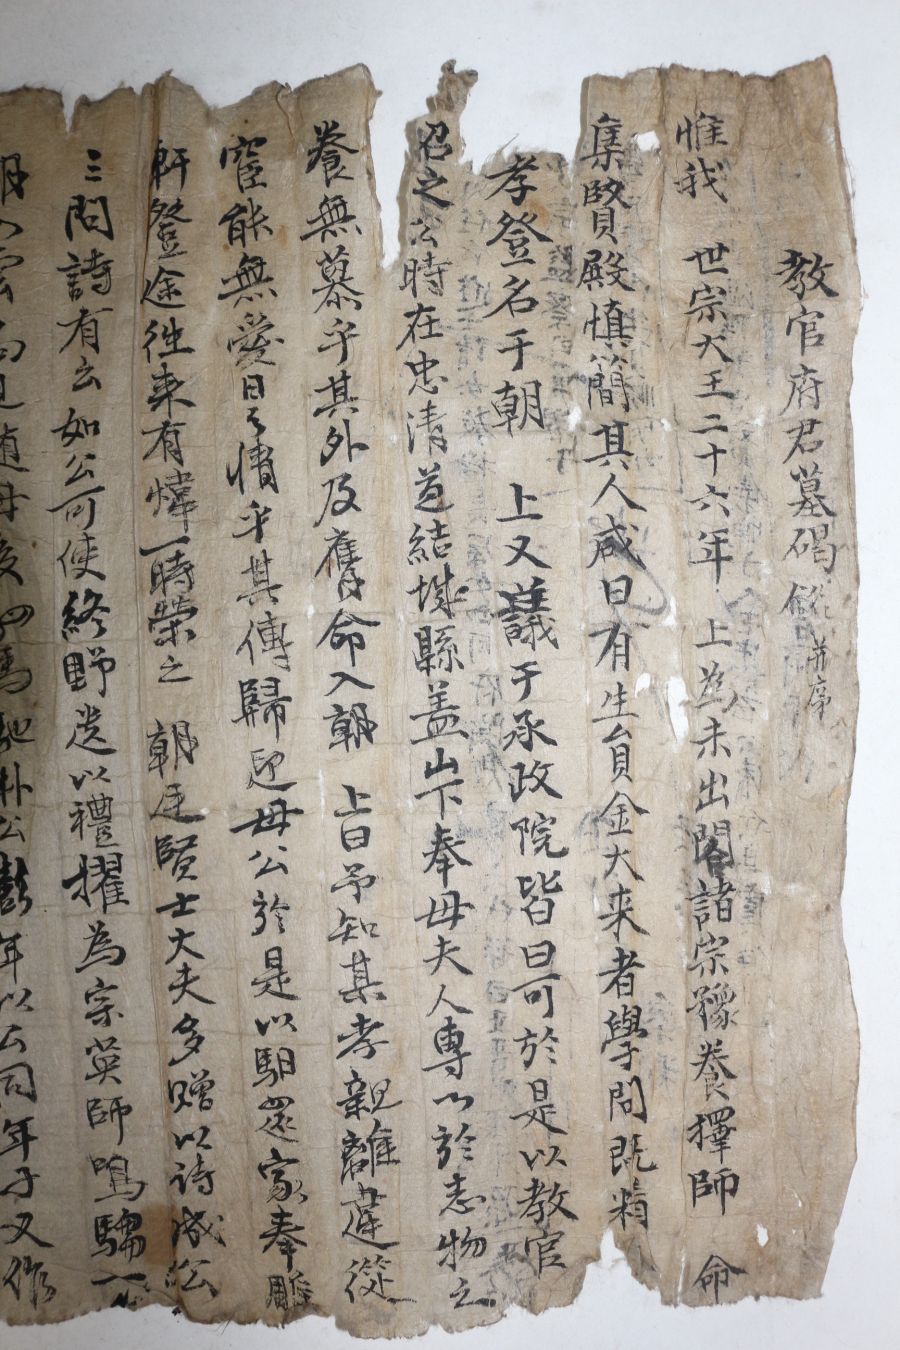 教官府君墓碣銘 并序
惟我 世宗大王二十六年 上為未出閤諸宗豫養擇師 命
集賢殿慎簡其人咸曰有生員金大来者學問既精
孝登名于朝 上又議于承政院皆曰可於是以教官
召之公時在忠清道結城縣盖山下奉母夫人專心於志物之
養無慕乎其外及膺命入朝 上曰予知其孝親離違從
宦能無愛日之情乎其傳歸迎母公於是以馹還家奉雕
軒登途徃来有煒一時榮之 朝廷賢士大夫多贈以诗成公
三問詩有云如公可使終野遗以禮擢為宗英師鳴騶一
朴公彭年以公同年子又作